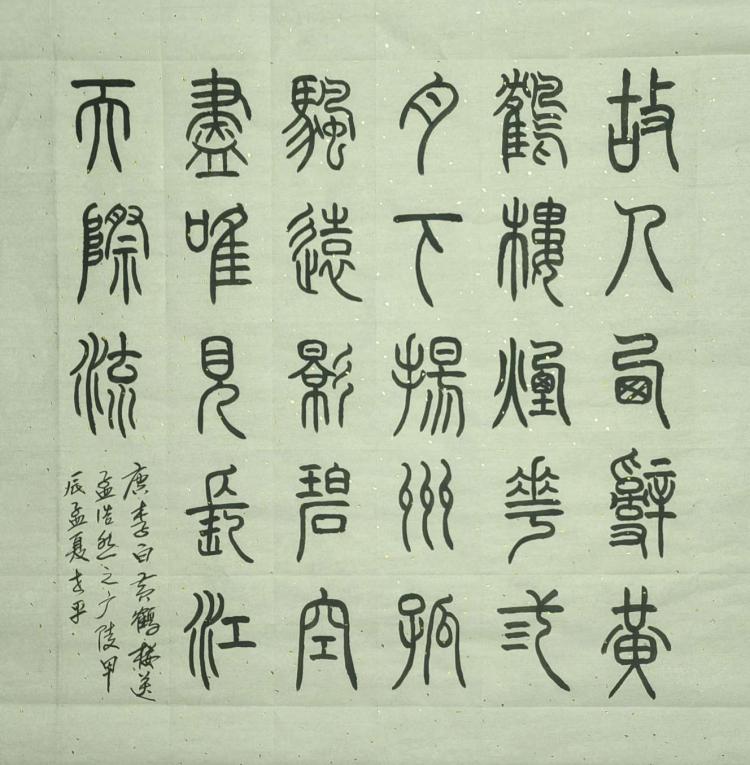 故人西辭黃
鶴樓煙華弎
月下揚州孤
颿遠影碧空
盡唯見長江
天際流
唐李白黄鶴楼送
孟浩然之广陵甲
辰孟夏